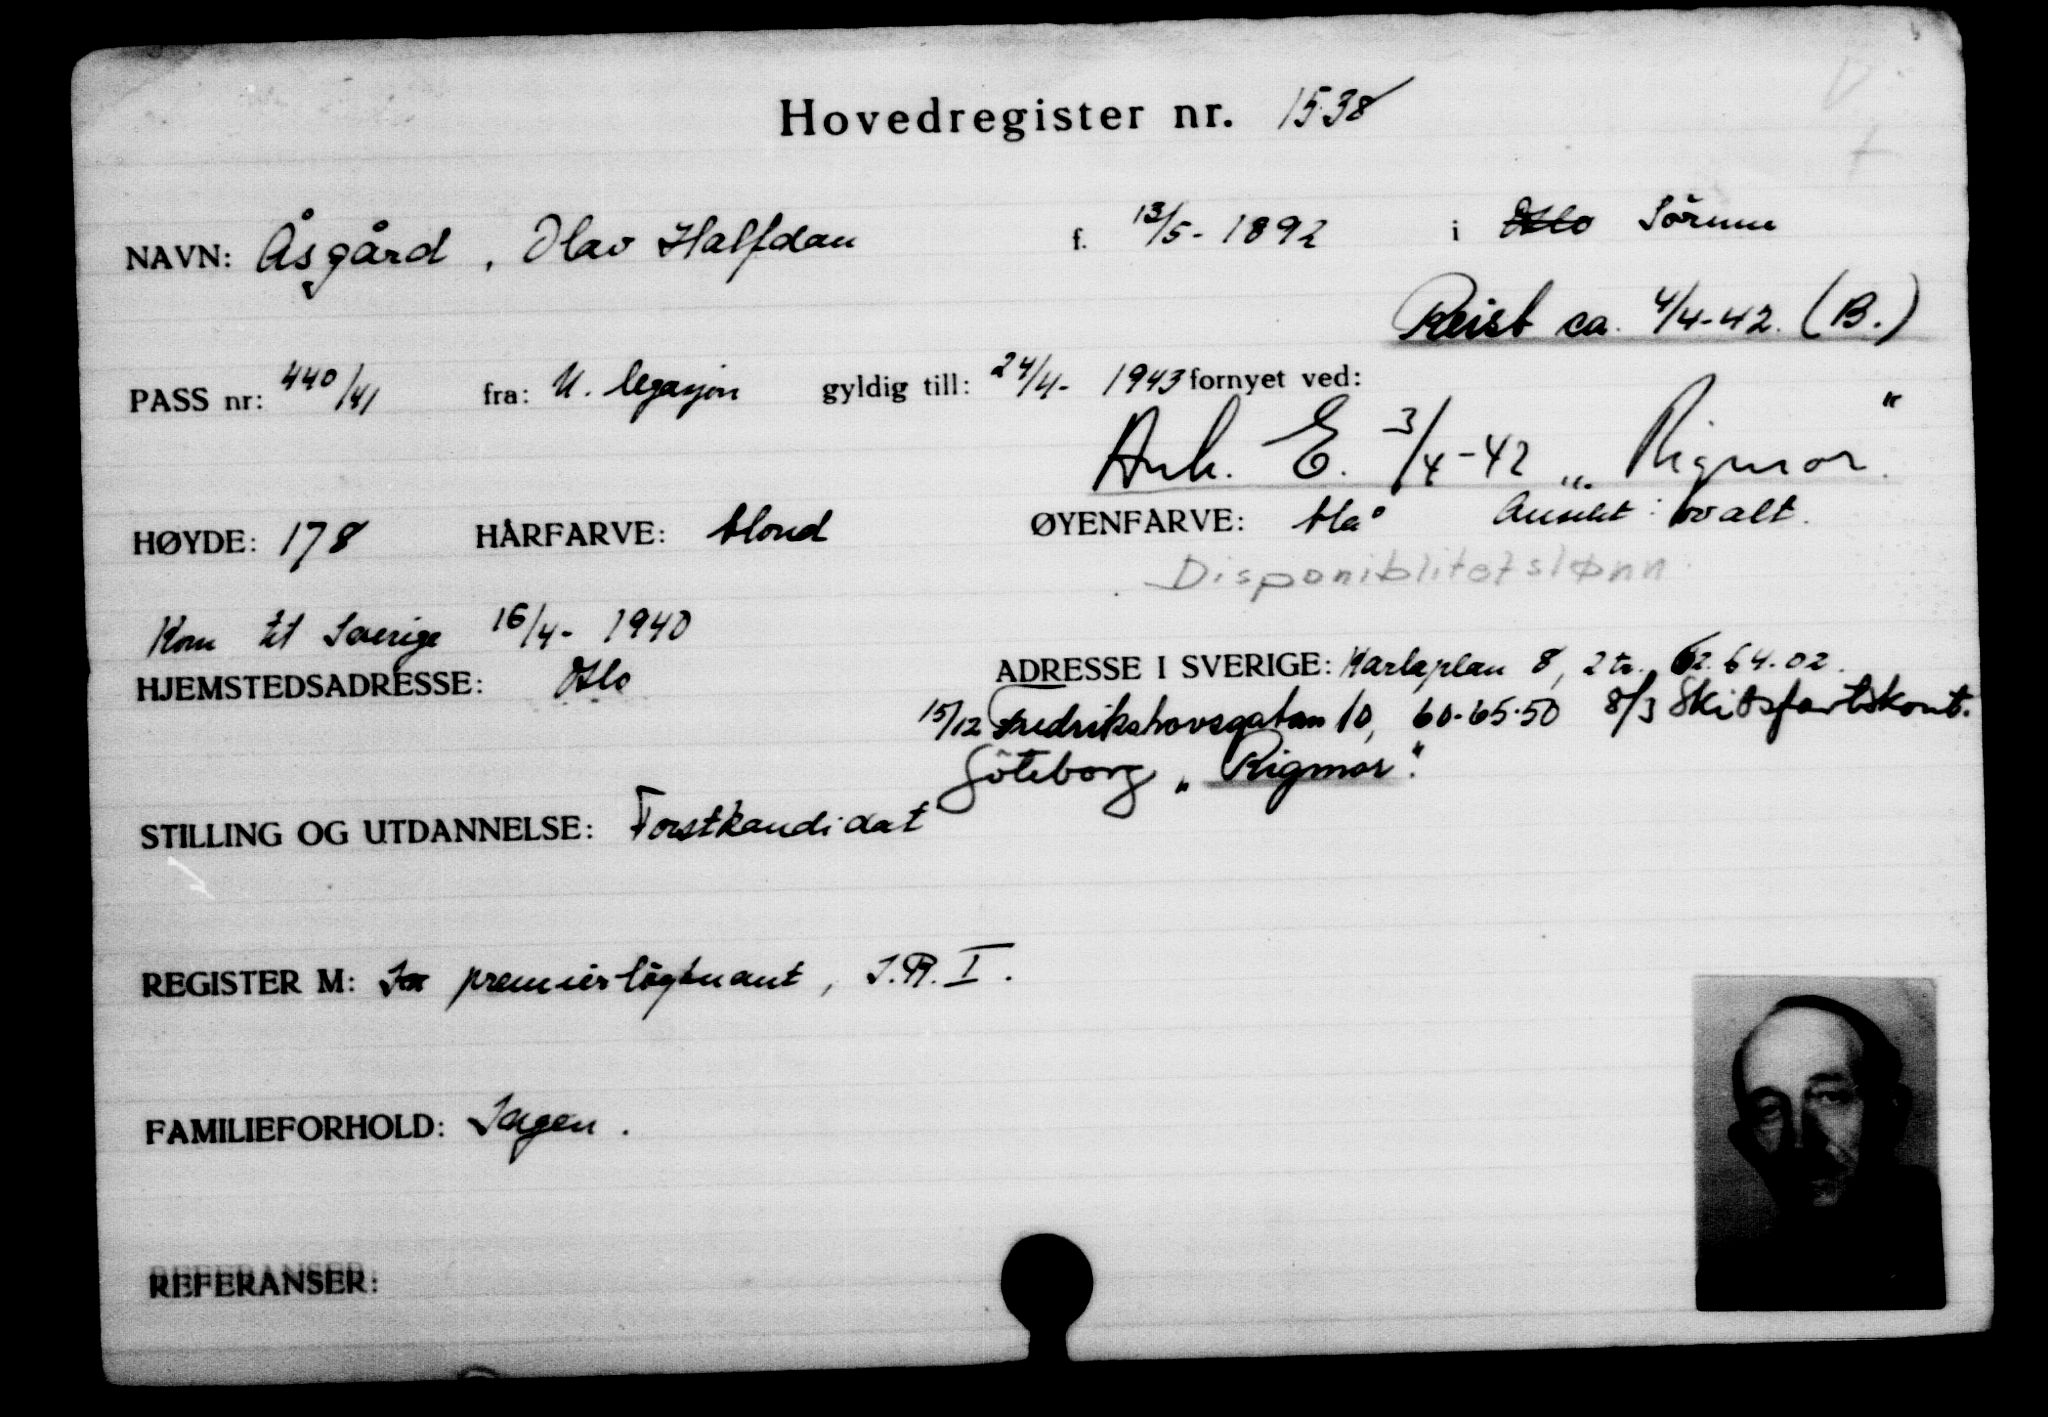 Hovedregister nr. 1538
NAVN: Åsgård, Olav Halfdan f. 13/5-1892 i ~~Oslo~~ Sörum
Reist ca. 4/4-42. (B.)
PASS nr: 440/41 fra: N. legasjon gyldig till: 24/4- 1943 fornyet ved:
Ank. E. 3/4-42 „Rigmor"
HØYDE: 178 HÅRFARVE: blond ØYENFARVE: blå Ansikt: ovalt.
Disponiblitetslønn
Kom til Sverige 16/4- 1940
HJEMSTEDSADRESSE: Oslo ADRESSE I SVERIGE: Karlaplan 8, 2 tr. 62.64.02.
15/12 Fredrikshovsgatan 10, 60.65.50 8/3 Skibsfartskont.
Göteborg „Rigmor".
STILLING OG UTDANNELSE: Forstkandidat
REGISTER M: premierløytnant, I.R. I.
FAMILIEFORHOLD: Ingen.
REFERANSER: